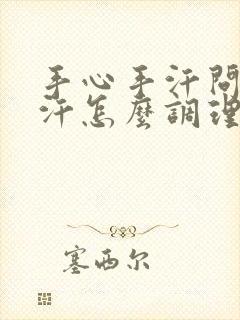 手心手汗問
汗怎麼調理
塞西尔